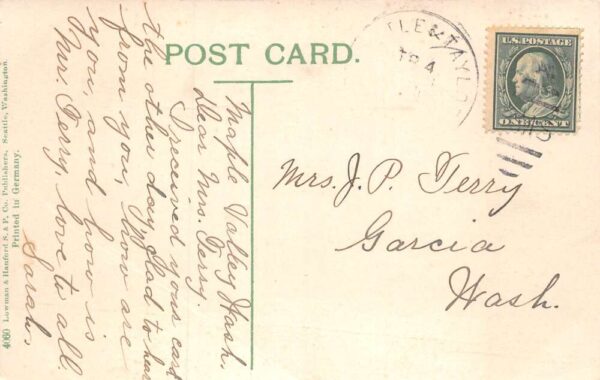 POST CARD.
Maple Valley Wash.
Dear Mrs. Terry.
I received your card
the other day, Glad to hear
from you, how are
you, and how is
Mr. Terry, love to all.
Sarah,
Mrs. J. P. Terry
Garcia
Wash.
U.S. POSTAGE
ONE CENT
TLE & TAYL
TR 4
4060 Lowman & Hanford S. & P. Co. Publishers, Seattle, Washington.
Printed in Germany.